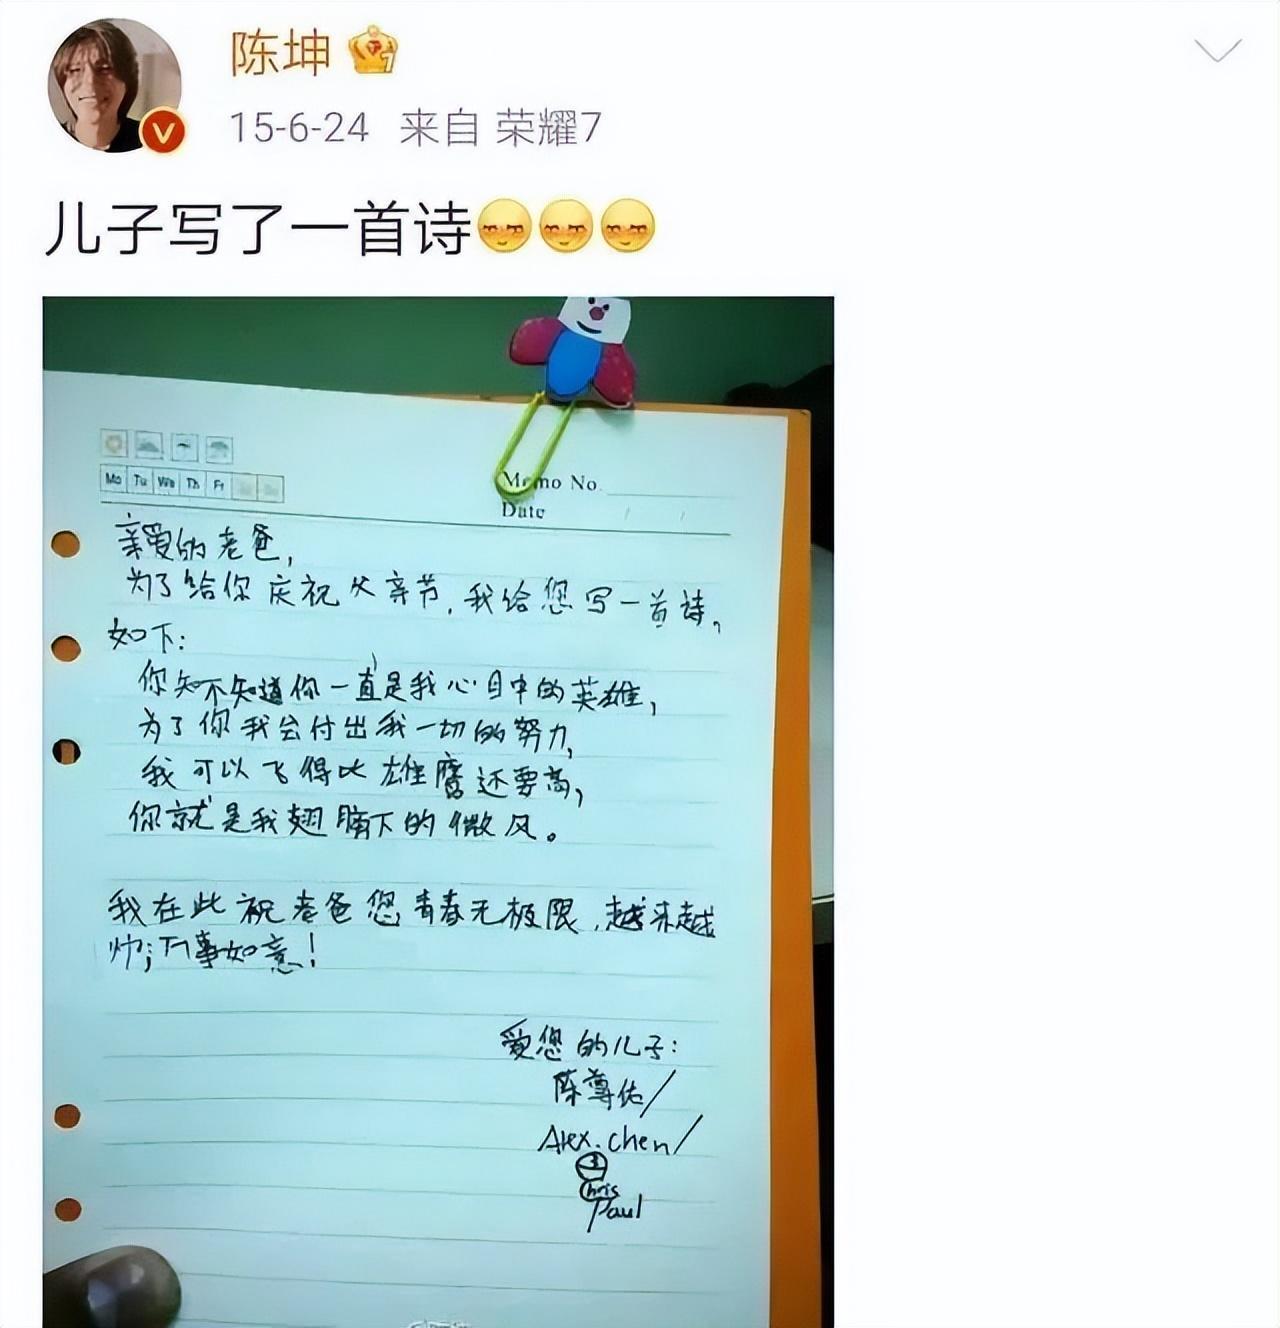 陈坤
15-6-24 来自 荣耀7
儿子写了一首诗
Mo Tu We Th Fr
Memo No.
Date / /
亲爱的老爸,
为了给你庆祝父亲节,我给您写一首诗,
如下:
你知不知道你一直是我心目中的英雄,
为了你我会付出我一切的努力,
我可以飞得比雄鹰还要高,
你就是我翅膀下的微风。
我在此祝老爸您青春无极限,越来越
帅;万事如意!
爱您的儿子:
陈尊佑/
Alex.chen/
3
Chris
Paul